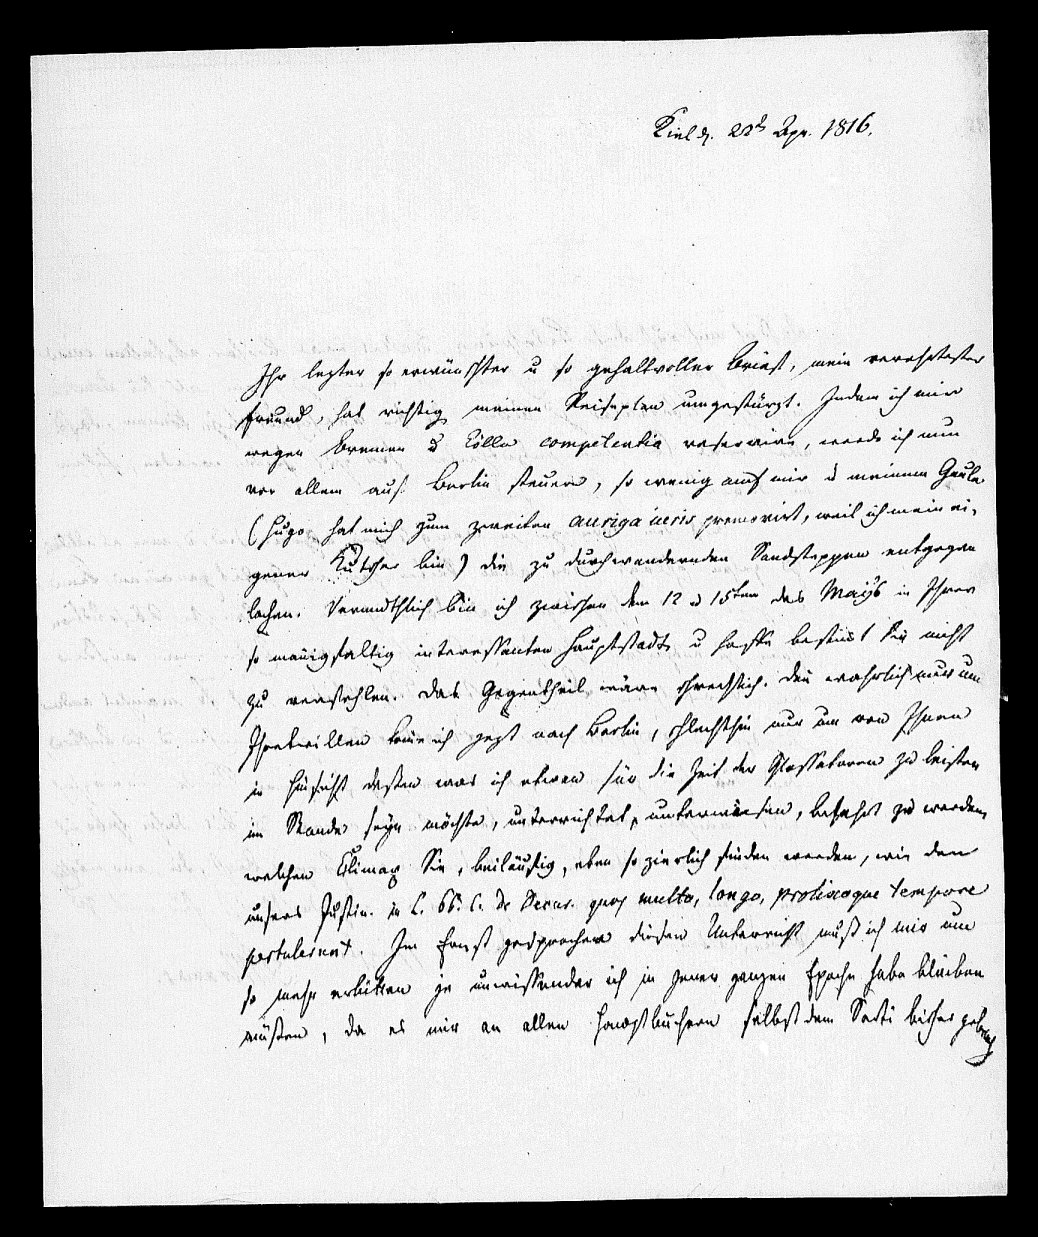 Kiel d. 22t Apr. 1816.
Ihr lezter so erwünschter u so gehaltvoller Brief, mein verehrtester
Freund, hat richtig meinen Reiseplan umgestürzt. Indem ich mir
wegen Bremen u Cölln competentia reservire, werde ich nun
vor allem auf Berlin steuern, so wenig auch mir u meinem Gaule
(Hugo hat mich zum zweiten auriga iuris promovirt, weil ich mein ei-
gener Kutscher bin) die zu durchwandernden Sandsteppen entgegen
lachen. Vermuthlich bin ich zwischen dem 12 u 15ten des Mays in Ihrer
so manigfaltig interessanten Hauptstadt, u hoffe bestimt Sie nicht
zu verfehlen. Das Gegentheil wäre schrecklich. Den wahrlich nur um
Ihretwillen komme ich jezt nach Berlin, schlechthin nur um von Ihnen
in Hinsicht dessen was ich etwan für die Zeit der Glossatoren zu leisten
im Stande seyn möchte, unterrichtet, unterwiesen, belehrt zu werden,
welchen Climax Sie, beiläufig, eben so zierlich finden werden, wie den
unsers Justin. in L. 66. C. de Decur. quos multo, longo, prolixoque tempore
pertulerunt. Im Ernst gesprochen diesen Unterricht muß ich mir um
so mehr erbitten je unwissender ich in jener ganzen Epoche habe bleiben
müßen, da es mir an allen Hauptbüchern selbst dem Sarti bisher gebrach